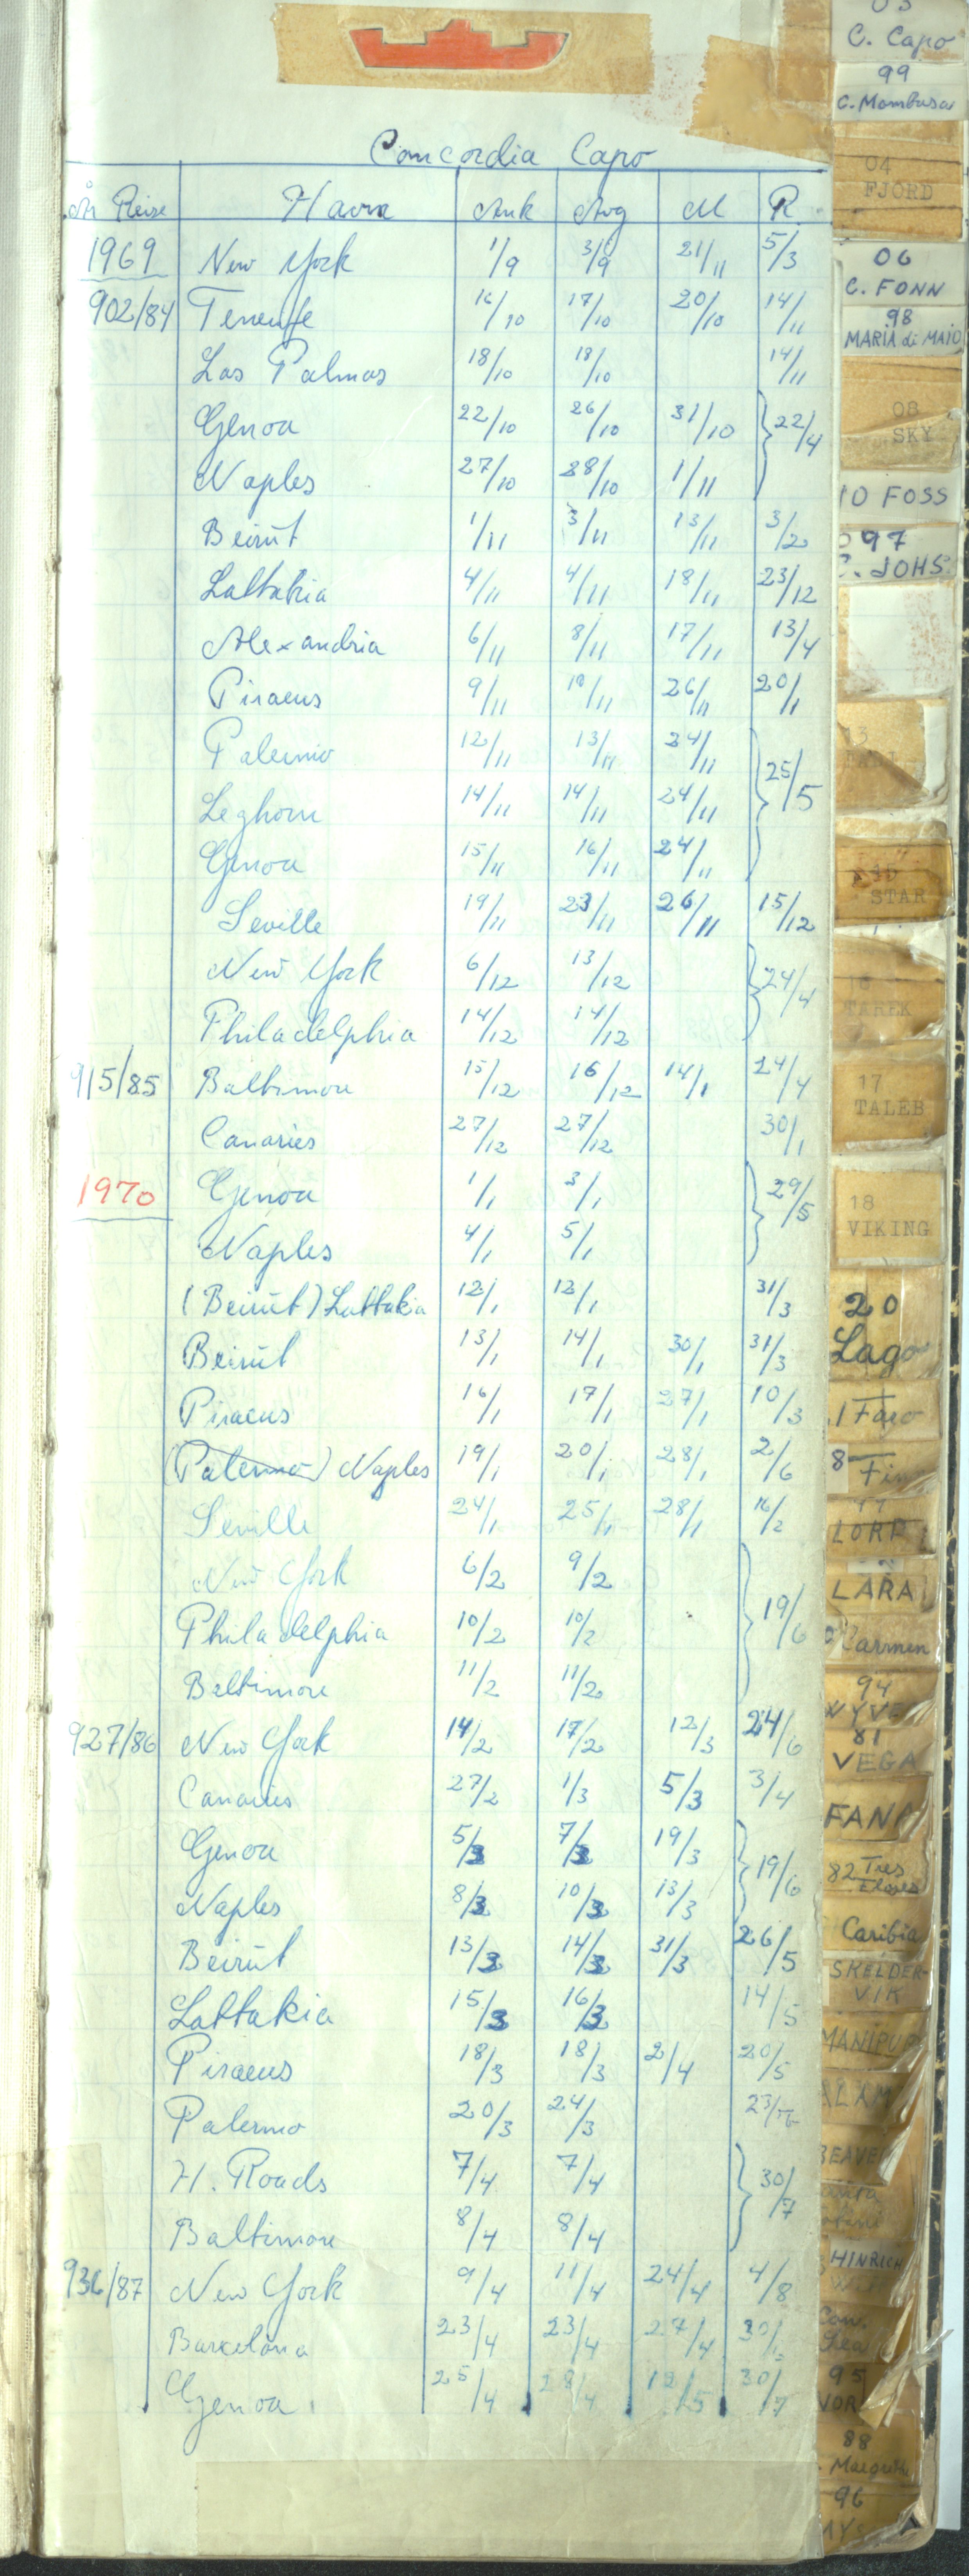 Concordia Capo
År Reise Havn Ank Avg M R.
1969 New York 1/9 3/9 21/11 5/3
902/84 Teneriffe 16/10 17/10 20/10 14/11
Las Palmas 18/10 18/10 14/11
Genoa 22/10 26/10 31/10 } 22/4
Naples 27/10 28/10 1/11
Beirut 1/11 3/11 13/11 3/2
Lattakia 4/11 4/11 18/11 23/12
Alexandria 6/11 8/11 17/11 13/4
Piraeus 9/11 10/11 26/11 20/1
Palermo 12/11 13/11 24/11
Leghorn 14/11 14/11 24/11 } 25/5
Genoa 15/11 16/11 24/11
Seville 19/11 23/11 26/11 15/12
New York 6/12 13/12 } 24/4
Philadelphia 14/12 14/12
915/85 Baltimore 15/12 16/12 14/1 24/4
Canaries 27/12 27/12 30/1
1970 Genoa 1/1 3/1 } 29/5
Naples 4/1 5/1
(Beirut) Lattakia 12/1 12/1 31/3
Beirut 13/1 14/1 30/1 31/3
Piraeus 16/1 17/1 27/1 10/3
(Palermo) Naples 19/1 20/1 28/1 2/6
Seville 24/1 25/1 28/1 16/2
New York 6/2 9/2
Philadelphia 10/2 10/2 } 19/6
Baltimore 11/2 11/2
927/86 New York 14/2 17/2 12/3 24/6
Canaries 27/2 1/3 5/3 3/4
Genoa 5/3 7/3 19/3 } 19/6
Naples 8/3 10/3 13/3
Beirut 13/3 14/3 31/3 26/5
Lattakia 15/3 16/3 14/5
Piraeus 18/3 18/3 2/4 20/5
Palermo 20/3 24/3
H. Roads 7/4 7/4 } 30/7
Baltimore 8/4 8/4
936/87 New York 9/4 11/4 24/4 4/8
Barcelona 23/4 23/4 27/4
Genoa 25/4 28/4 12/5 30/7
03
C. Capo
99
C. Mombasa
04
FJORD
06
C. FONN
98
MARIA di MAIO
08
SKY
10 FOSS
97
C. JOHS.
STAR
16
TAREK
17
TALEB
18
VIKING
20
Lago
Faro
8
LARA
Carmen
94
81
VEGA
FANA
82 Tres
Caribia
SKELDER-
VIK
MANIPUR
BEAVER
HINRICH
95
88
Margrethe
96